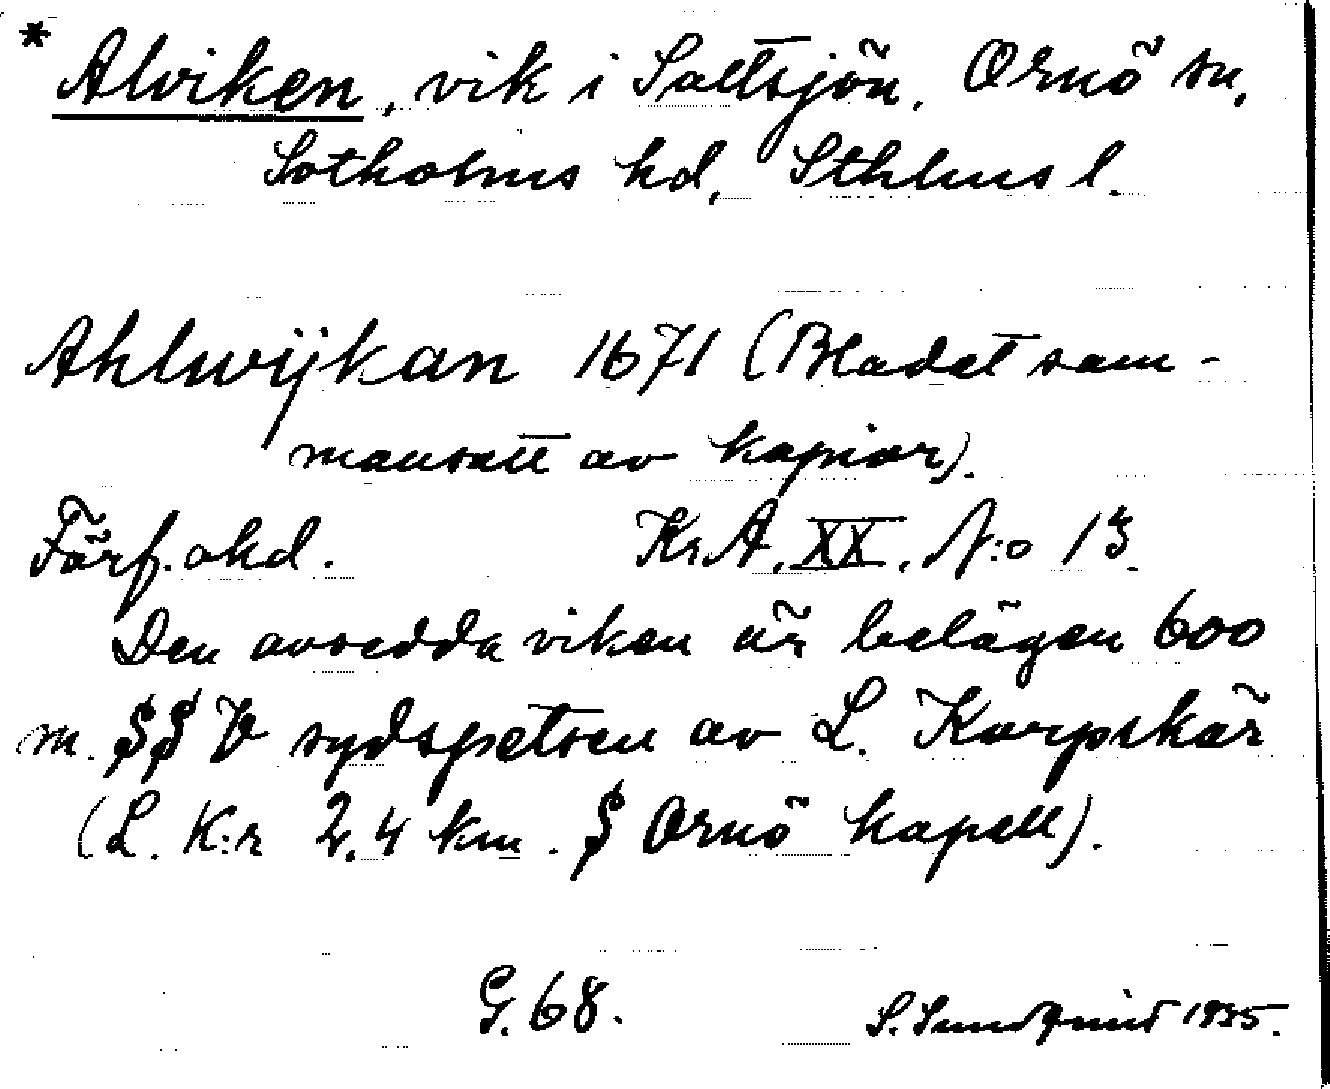 * Alviken, vik i Saltsjön, Ornö sn,
Sotholms hd, Sthlms l.
Ahlwijkan 1671 (Bladet sam-
mansatt av kopior).
Förf. okd. Kr.A. XX. N:o 13.
Den avsedda viken är belägen 600
m. SSV sydspetsen av L. Korpskär
(L. K:r 2,4 km. S Ornö kapell).
G. 68. S. Sundqvist 1935.